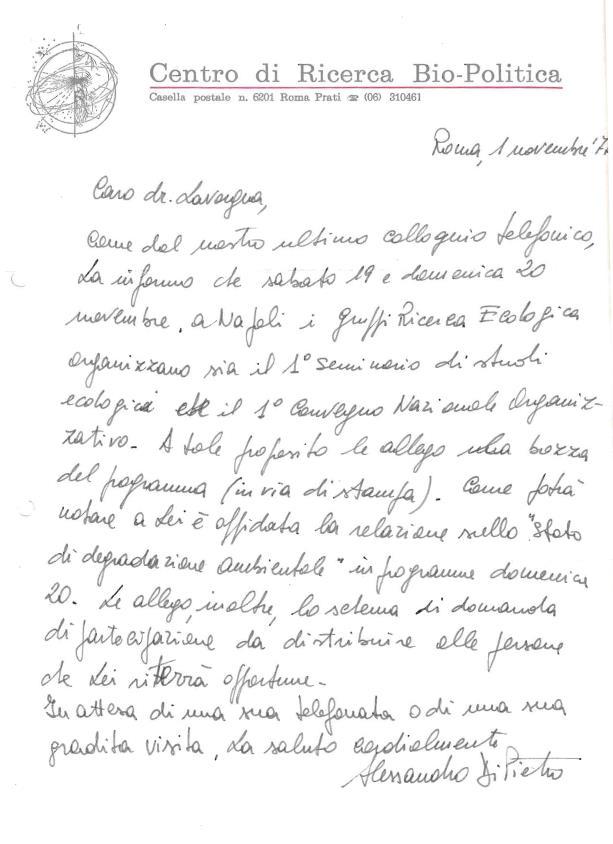 Centro di Ricerca Bio-Politica
Casella postale n. 6201 Roma Prati ☎ (06) 310461
Roma, 1 novembre '7
Caro dr. Lavagna,
come dal nostro ultimo colloquio telefonico,
La informo che sabato 19 e domenica 20
novembre, a Napoli i Gruppi Ricerca Ecologica
organizzano sia il 1° Seminario di studi
ecologici che il 1° Convegno Nazionale Organiz-
zativo. A tale proposito le allego una bozza
del programma (in via di stampa). Come potrà
notare a Lei è affidata la relazione sullo "stato
di degradazione ambientale" in programma domenica
20. Le allego, inoltre, lo schema di domanda
di partecipazione da distribuire alle persone
che Lei riterrà opportune.
In attesa di una sua telefonata o di una sua
gradita visita, La saluto cordialmente
Alessandro Di Pietro